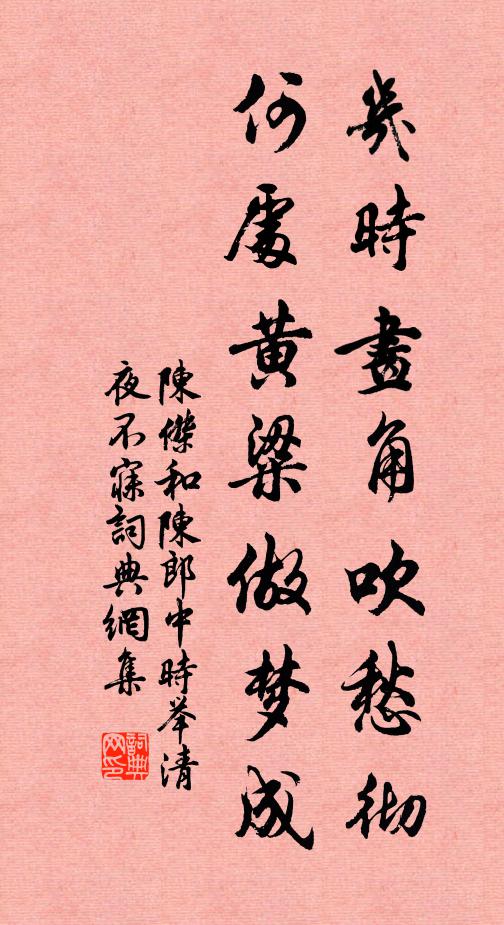 幾時畫角吹愁彻
何處黄梁做梦成
陳傑和陳郎中時举清
夜不寐詞典網集
詞典
网印